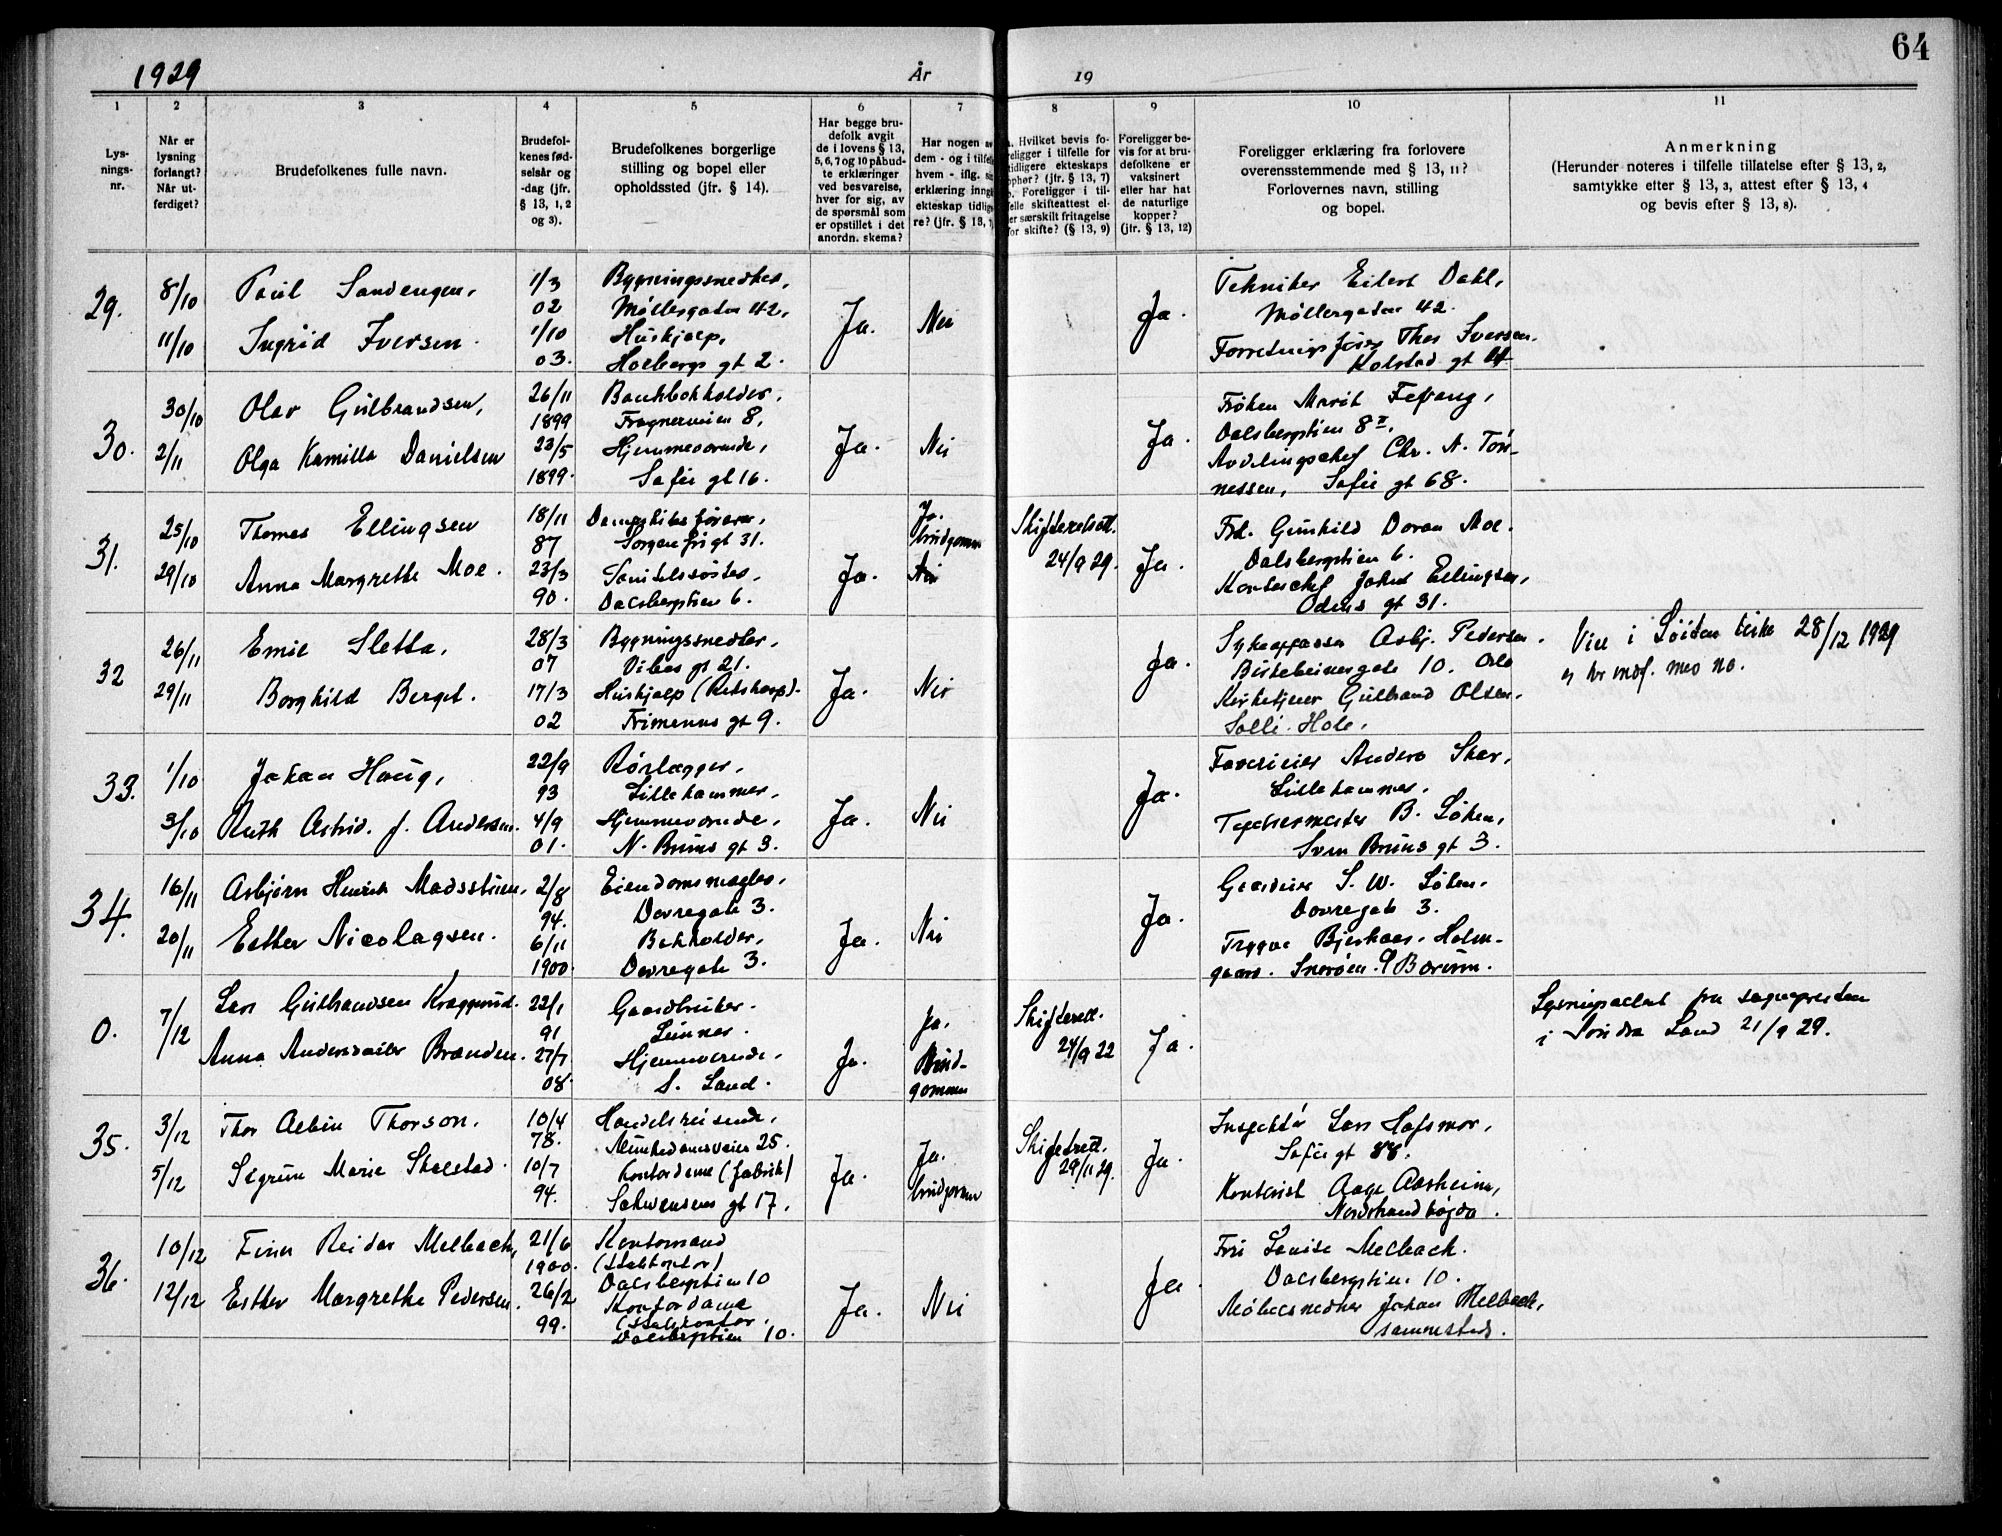 64
1929
År
19
1
2
3
4
5
6
7
8
9
10
11
Lys-
nings-
nr.
Når er
lysning
forlangt?
Når ut-
ferdiget?
Brudefolkenes fulle navn.
Brudefol-
kenes fød-
selsår og
-dag (jfr.
§ 13, 1, 2
og 3).
Brudefolkenes borgerlige
stilling og bopel eller
opholdssted (jfr. § 14).
Har begge bru-
defolk avgit
de i lovens § 13,
5, 6, 7 og 10 påbud-
te erklæringer
ved besvarelse,
hver for sig, av
de spørsmål som
er opstillet i det
anordn. skema?
Har nogen
dem - og i tilfelle
hvem - iflg.
erklæring inng
ekteskap tidlig
re? (jfr. § 13,
Hvilket bevis fo-
religger i tilfelle for
tidligere ekteskaps
ophør? (jfr. § 13, 7)
Foreligger i til-
felle skifteattest el-
er særskilt fritagelse
for skifte? (§ 13, 9)
Foreligger be-
vis for at bru-
defolkene er
vaksinert
eller har hat
de naturlige
kopper?
(jfr. § 13, 12)
Foreligger erklæring fra forlovere
overensstemmende med § 13, 11?
Forlovernes navn, stilling
og bopel.
Anmerkning
(Herunder noteres i tilfelle tillatelse efter § 13, 2,
samtykke etter § 13, 3, attest efter § 13, 4
og bevis efter § 13, 8).
29.
8/10
11/10
Paul Sandengen,
Ingrid Iversen.
1/3
02
1/10
03.
Bygningssnedker,
Møllergaten 42,
Hushjelp,
Holbergs gt 2.
Ja.
Nei
Ja.
Tekniker Eilert Dahl,
Møllergaten 42.
Forretningsfører Thos Iversen.
Kolstad gt
30.
30/10
2/11
Olav Gulbrandsen,
Olga Kamilla Danielsen
26/11
1899
23/5
1899.
Bankbokholder,
Frognerveien 8,
Hjemmeværende,
Sofie gt 16.
Ja.
Nei
Ja.
Frøken Marit
Dalsbergstien 8 II,
Avdelingschef Chr. A. Tøn-
nessen, Sofie gt 68.
31.
25/10
29/10
Thomas Ellingsen
Anna Margrethe Moe.
18/11
87
23/3
90.
Sorgenfrigt 31.
Dalsbergstien 6.
Ja.
Ja.
brudgommen
Skifterett.
24/9 29.
Ja.
Frl. Gunhild Moe.
Dalsbergstien 6.
Kontorchef Ellingsen,
Odins gt 31.
32
26/11
29/11
Emil Sletta,
Borghild Berget.
28/3
07
17/3
02
Bygningssnedker,
Vibes gt 21.
Hushjelp
Frimanns gt 9.
Ja.
Nei
Ja.
Asbj. Pedersen.
Birkebeinergate 10. Oslo
Kirketjener Gulbrand Olsen.
Solli. Hole.
Viet i Løiten kirke 28/12 1929
33.
1/10
3/10
Johan Haug,
Ruth Astrid. J. Andersen.
22/9
93
4/9
01.
Rørlegger,
Lillehammer,
Hjemmeværende,
N. Bruns gt 3.
Ja.
Nei
Ja.
Anders Skar,
Lillehammer.
Tapetsermester B. Løken,
Sven Bruns gt 3.
34.
16/11
20/11
Asbjørn Henrik Madsstuen,
Esther Nicolaysen.
2/8
94.
6/11
1900.
Eiendomsmegler,
Dovregate 3.
Bokholder,
Dovregate 3.
Ja.
Nei
Ja.
S. W. Løken.
Dovregate 3.
Trygve Holm-
gaard. Snarøen. Bærum.
0.
7/12
Lars Gulbrandsen
Anna Andersdatter Branden.
22/1
91
27/7
08.
Gaardbruker.
Lunner.
Hjemmeværende,
S. Land.
Ja.
Ja.
Brud-
gommen
Skifterett.
24/9 22
Ja.
Lysningsattest fra sognepresten
i Søndre Land 21/9 29.
35.
3/12
5/12
Thor Albin Thorson.
Sigrun Marie Skolstad.
10/4
78.
10/7
94.
Handelsreisende,
Munkedamsveien 25.
Kontordame (fabrik)
Schwensens gt 17.
Ja.
Ja.
brudgommen
Skifterett.
29/11 29.
Ja.
Inspektør Lars Hofsmor,
Sofie gt 88.
Kontorist Aage Aasheim,
Nordstrandhøgda.
36.
10/12
12/12
Finn Reidar Melbach,
Esther Margrethe Pedersen.
21/6
1900.
26/2
99.
Kontormand
Dalsbergstien 10
Kontordame
Dalsbergstien 10.
Ja.
Nei
Ja.
Fru Louise Melbach.
Dalsbergstien 10.
Møbelsnedker Johan Melbach,
sammesteds.